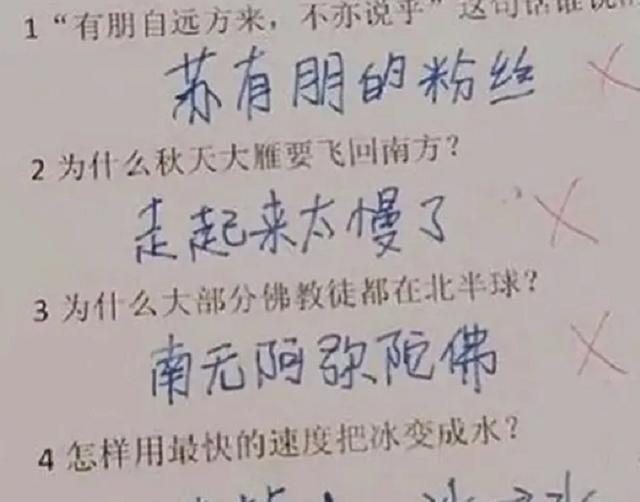 1 “有朋自远方来，不亦说乎”这句话谁说
苏有朋的粉丝
2 为什么秋天大雁要飞回南方？
走起来太慢了
3 为什么大部分佛教徒都在北半球？
南无阿弥陀佛
4 怎样用最快的速度把冰变成水？